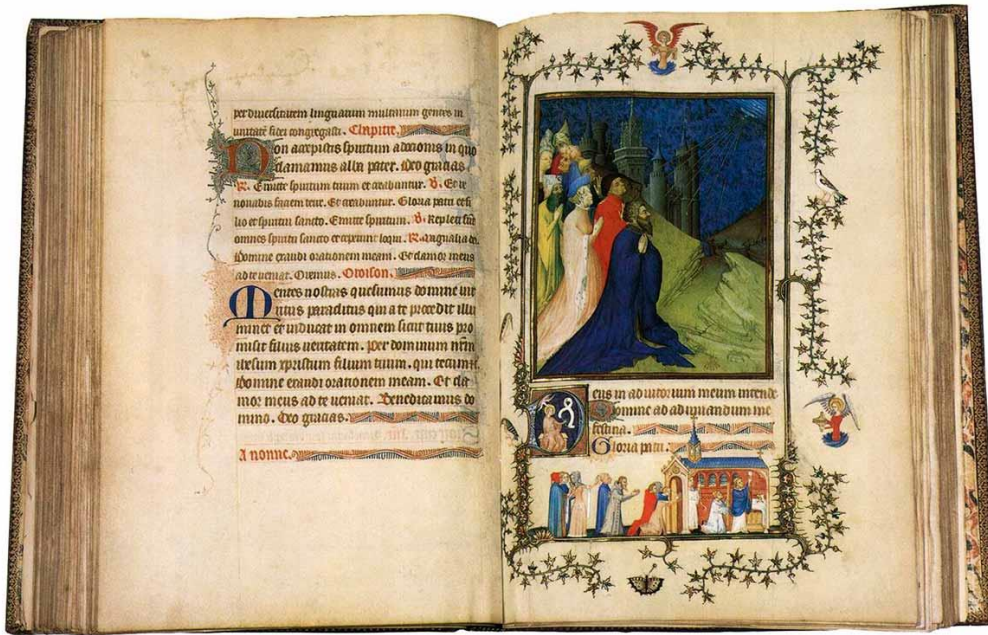 per diversitatem linguarum multarum gentes in
unitate fidei congregasti. Clapitre.
Non accepistis spiritum adocionis in quo
clamamus abba pater. Deo gracias
R. Emitte spiritum tuum et creabuntur. V. Et re
novabis faciem terre. Et creabuntur. Gloria patri et fi
lio et spiritui sancto. Emitte spiritum. V. Repleti sunt
omnes spiritu sancto et ceperunt loqui. R. Magnalia dei.
Domine exaudi orationem meam. Et clamor meus
ad te veniat. Oremus. Oroison.
Mentes nostras quesumus domine
paraclitus qui a te procedit illu
minet et inducat in omnem sicut tuus pro
misit filius veritatem. Per dominum nrm
ihesum xpristum filium tuum. qui tecum
Domine exaudi orationem meam. Et cla
mor meus ad te veniat. Benedicamus do
mino. Deo gracias.
A nonne.
Deus in adiutorium meum intende
Domine ad adiuvandum me
festina.
Gloria patri.